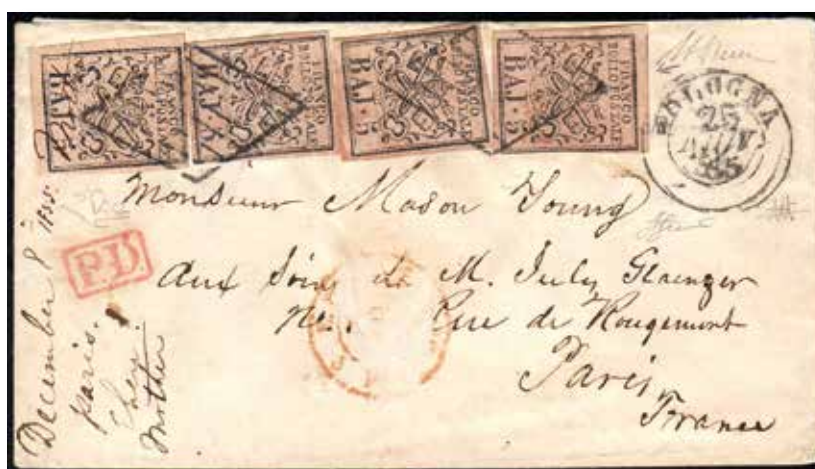 FRANCO
BOLLO
POSTALE
BAJ. 5
FRANCO
BOLLO
POSTALE
BAJ. 5
FRANCO
BOLLO
POSTALE
BAJ. 5
FRANCO
BOLLO
POSTALE
BAJ. 5
BOLOGNA
25
NOV
55
Monsieur Mason Young
P.D.
Aux Soin de M. July Glaenzer
Rue de Rougemont
Paris
France
December 8 1855.
Paris.
Mother